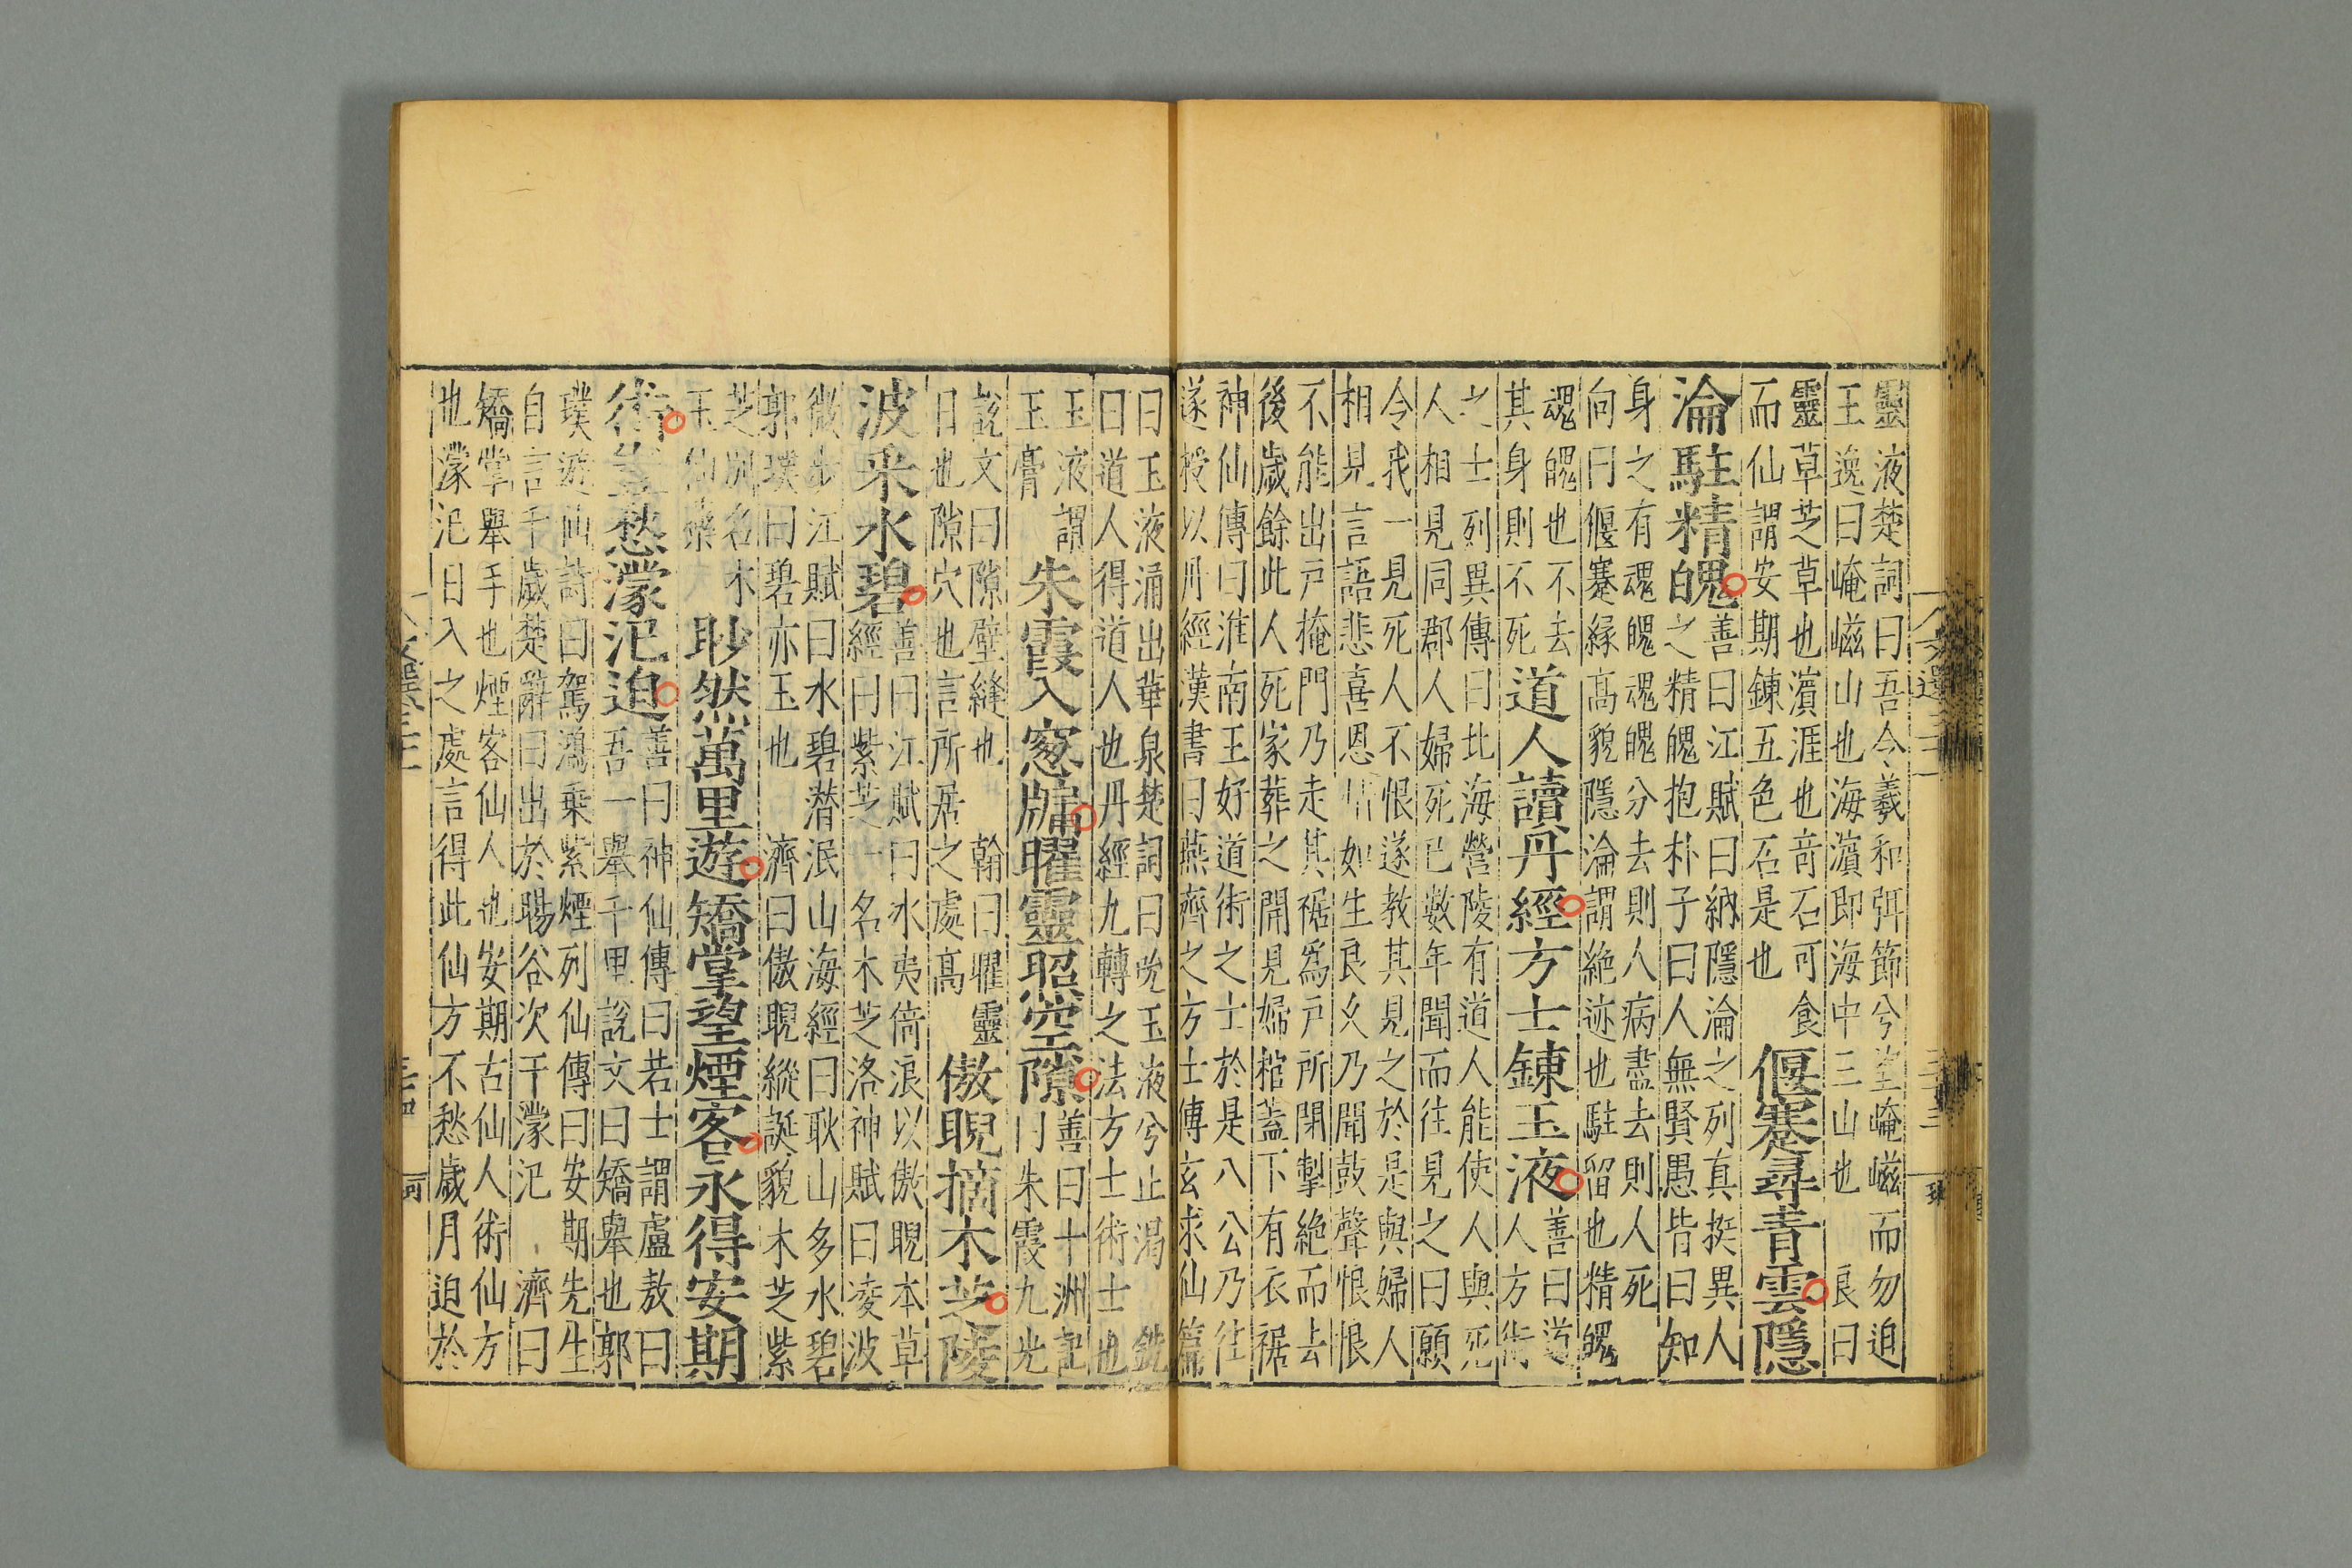 靈液楚詞曰吾令羲和弭節兮望崦嵫而勿迫
王逸曰崦嵫山也海濵即海中三山也 良曰
靈草芝草也濵涯也竒石可食
而仙謂安期鍊五色石是也
偃蹇尋青雲隱
淪駐精魄
善曰江賦曰納隱淪之列真挺異人
之精魄抱朴子曰人無賢愚皆曰知
身之有魂魄魂魄分去則人病盡去則人死
向曰偃蹇縁髙貌隱淪謂絶迹也駐留也精魄
魂魄也不去
其身則不死
道人讀丹經方士鍊玉液
善曰道
人方術
之士列異傳曰北海營陵有道人能使人與死
人相見同郡人婦死已數年聞而往見之曰願
令我一見死人不恨遂教其見之於是與婦人
相見言語悲喜恩情如生良乆乃聞鼓聲恨恨
不能出戸掩門乃走其裾爲戸所閉掣絶而去
後歳餘此人死家葬之開見婦棺蓋下有衣裾
神仙傳曰淮南王好道術之士於是八公乃往
遂授以丹經漢書曰燕齊之方士傳玄求仙篇
曰玉液涌出華泉楚詞曰吮玉液兮止渴 銑
曰道人得道人也丹經九轉之法方士術士也
玉液謂
玉膏
朱霞入窓牖曜靈照空隙
善曰十洲記
曰朱霞九光
説文曰隙壁縫也 翰曰曜靈
日也隙穴也言所居之處髙
傲睨摘木芝陵
波采水碧
善曰江賦曰水夷倚浪以傲睨本草
經曰紫芝一名木芝洛神賦曰凌波
微步江賦曰水碧潜泯山海經曰耿山多水碧
郭璞曰碧亦玉也 濟曰傲睨縱誕貌木芝紫
芝別名木
玉仙藥
眇然萬里遊矯掌望煙客永得安期
術豈愁濛汜迫
善曰神仙傳曰若士謂盧敖曰
吾一舉千里説文曰矯舉也郭
璞遊仙詩曰駕鴻乗紫煙列仙傳曰安期先生
自言千歳楚辭曰出於暘谷次于濛汜 濟曰
矯掌舉手也煙客仙人也安期古仙人術仙方
也濛汜日入之處言得此仙方不愁歳月迫於